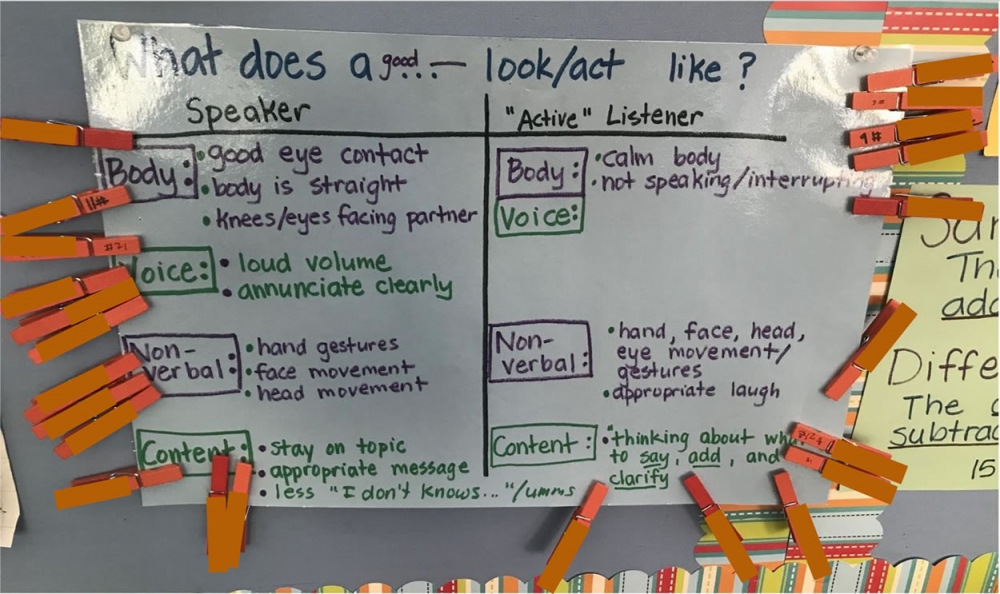 What does a good...— look/act like?
Speaker
Body:
• good eye contact
• body is straight
• knees/eyes facing partner
Voice:
• loud volume
• annunciate clearly
Non-
verbal:
• hand gestures
• face movement
• head movement
Content:
• stay on topic
• appropriate message
• less "I don't knows..."/umms
"Active" Listener
Body:
• calm body
• not speaking/interrupting
Voice:
Non-
verbal:
• hand, face, head,
eye movement/
gestures
• appropriate laugh
Content:
• "thinking about
to say, add, and
clarify
11#
#21
9#
Th
add
Diffe
The
subtrac
15